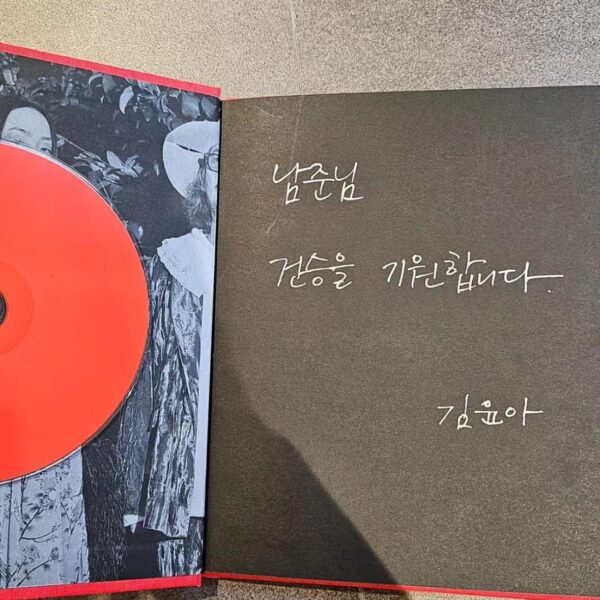 남준님
건승을 기원합니다.
김윤아